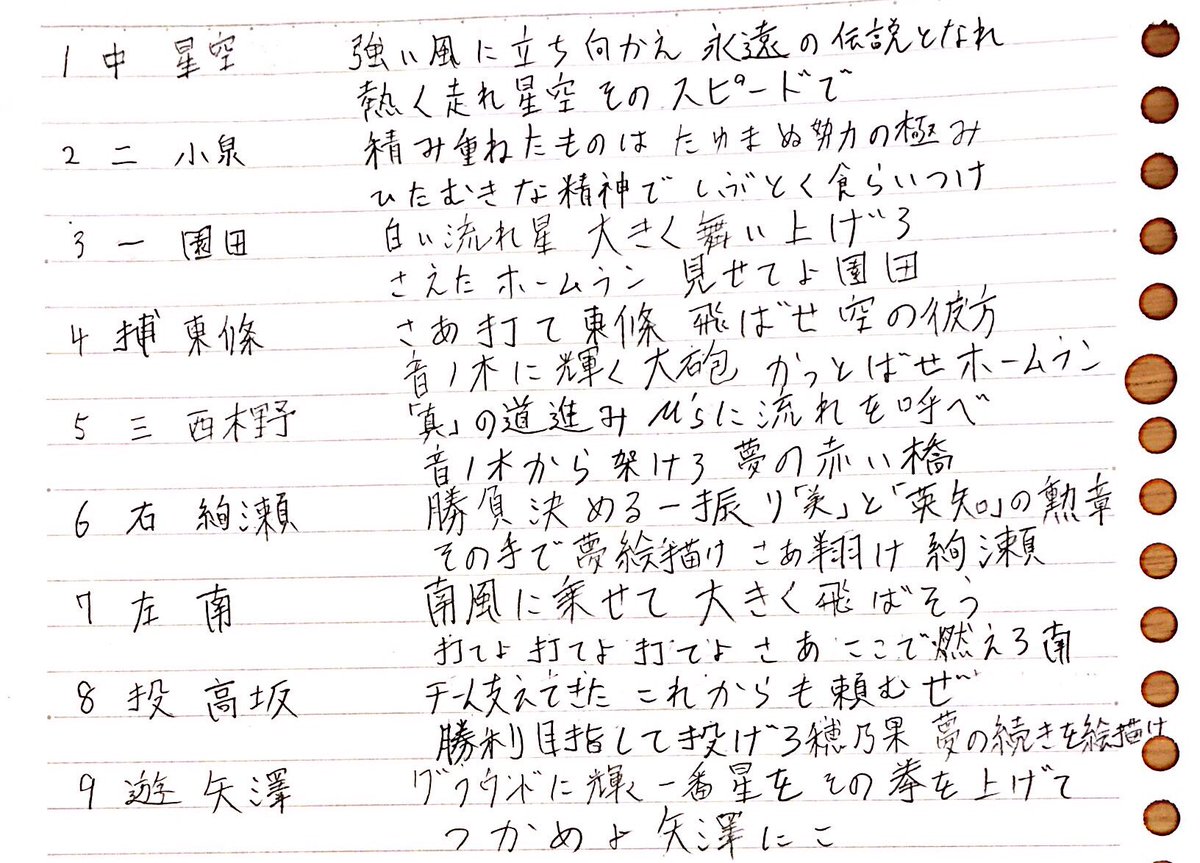 1 中 星空 強い風に立ち向かえ 永遠の伝説となれ
熱く走れ星空 そのスピードで
2 二 小泉 積み重ねたものは たゆまぬ努力の極み
ひたむきな精神で しぶとく食らいつけ
3 一 園田 白い流れ星 大きく舞い上げろ
さえたホームラン 見せてよ園田
4 捕 東條 さあ打て東條 飛ばせ空の彼方
音ノ木に輝く大砲 かっとばせホームラン
5 三 西木野 「真」の道進み μ'sに流れを呼べ
音ノ木から架けろ 夢の赤い橋
6 右 絢瀬 勝負決める一振り「美」と「英知」の勲章
その手で夢絵描け さあ翔け 絢瀬
7 左 南 南風に乗せて 大きく飛ばそう
打てよ打てよ打てよ さあ ここで燃えろ南
8 投 高坂 チーム支えてきた これからも頼むぜ
勝利目指して投げろ穂乃果 夢の続きを絵描け
9 遊 矢澤 グラウンドに輝く一番星を その拳を上げて
つかめよ 矢澤にこ